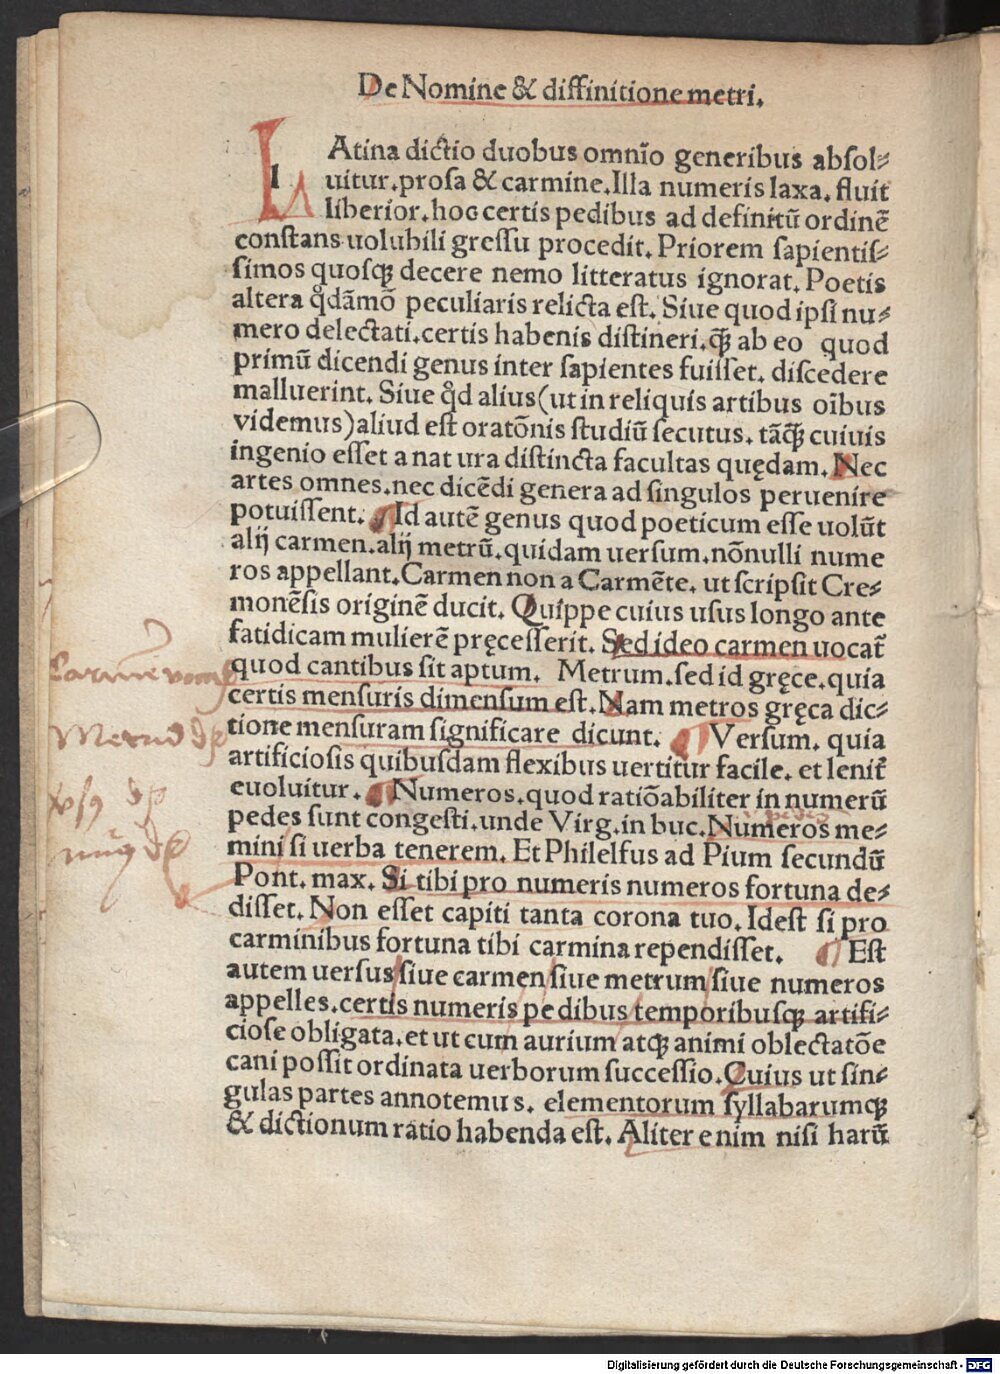 De Nomine & diffinitione metri.
LAtina dictio duobus omnīo generibus absol⸗
uitur.prosa & carmine.Illa numeris laxa. fluit
liberior.hoc certis pedibus ad definitū ordinē
constans uolubili gressu procedit. Priorem sapientis⸗
simos quosqꝫ decere nemo litteratus ignorat. Poetis
altera qͥdāmō peculiaris relicta est. Siue quod ipsi nu⸗
mero delectati.certis habenis distineri.qꝫ̄ ab eo quod
primū dicendi genus inter sapientes fuisset. discedere
malluerint. Siue qͥd alius(ut in reliquis artibus oībus
videmus)aliud est oratōnis studiū secutus. tāqꝫ̄ cuiuis
ingenio esset a nat ura distincta facultas quędam. Nec
artes omnes.nec dicēdi genera ad singulos peruenire
potuissent. ¶ Id autē genus quod poeticum esse uolūt
alij carmen.alij metrū.quidam uersum.nōnulli nume
ros appellant.Carmen non a Carmēte. ut scripsit Cre⸗
monēsis originē ducit. Quippe cuius usus longo ante
fatidicam mulierē pręcesserit. Sed ideo carmen uocat̄
quod cantibus sit aptum. Metrum.sed id gręce.quia
certis mensuris dimensum est. Nam metros gręca dic⸗
tione mensuram significare dicunt. ¶ Versum. quia
artificiosis quibusdam flexibus uertitur facile. et lenit̄
euoluitur. ¶ Numeros.quod ratiōabiliter in numerū
pedes sunt congesti.unde Virg.in buc.Numeros me⸗
mini si uerba tenerem. Et Philelfus ad Pium secundū
Pont. max. Si tibi pro numeris numeros fortuna de⸗
disset. Non esset capiti tanta corona tuo. Idest si pro
carminibus fortuna tibi carmina rependisset. ¶ Est
autem uersus/siue carmen/siue metrum/siue numeros
appelles.certis numeris pedibus temporibusqꝫ artifi⸗
ciose obligata.et ut cum aurium atqꝫ animi oblectatōe
cani possit ordinata uerborum successio.Cuius ut sin⸗
gulas partes annotemus. elementorum syllabarumqꝫ
& dictionum ratio habenda est. Aliter enim nisi harū
Digitalisierung gefördert durch die Deutsche Forschungsgemeinschaft - DFG